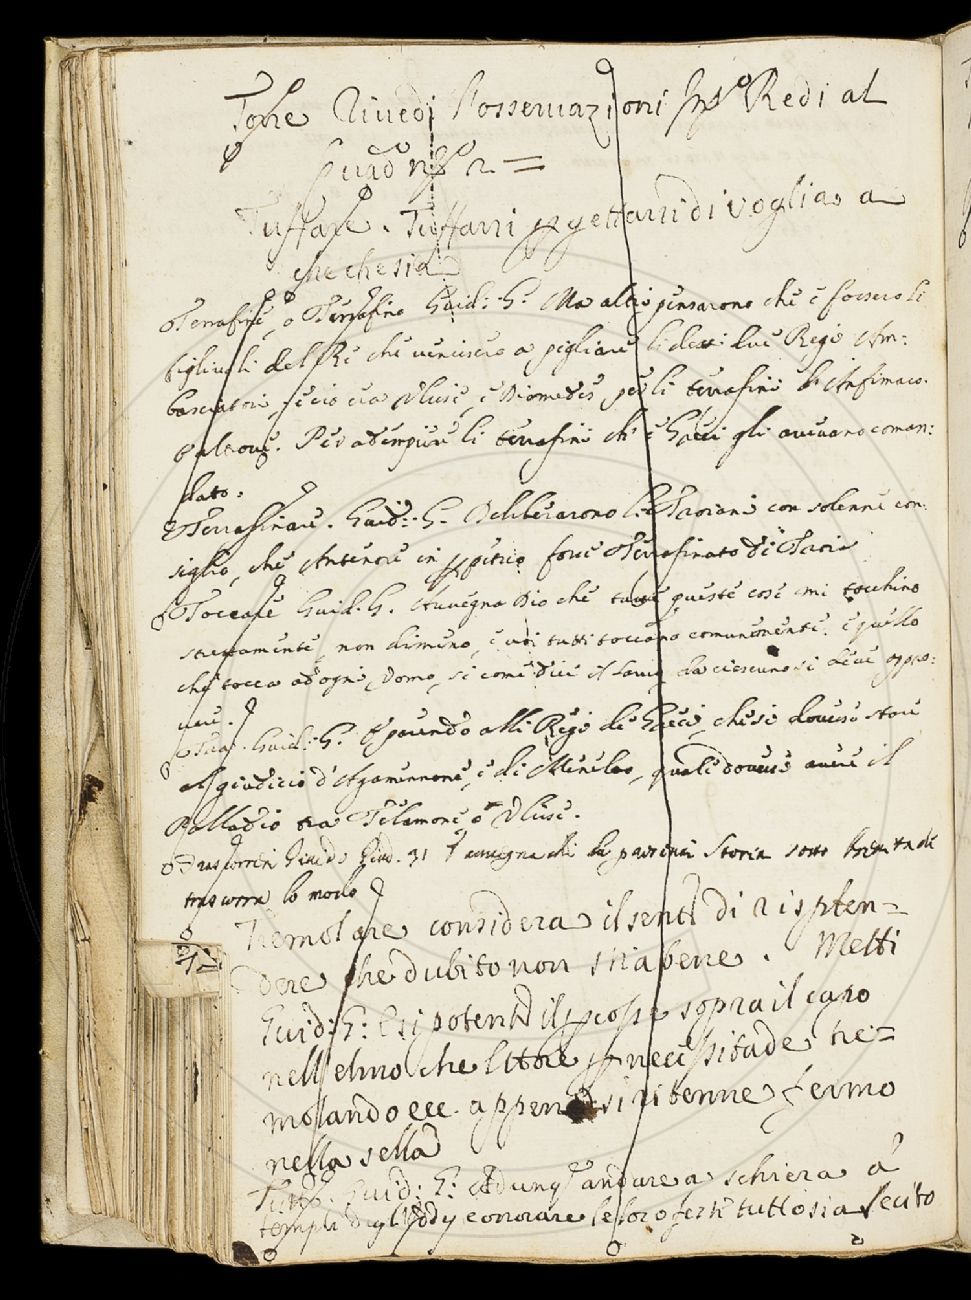 Torre Rivedi l'osservazioni Redi al
quad 2 =
Tuffare. Tuffarsi gettarsi di voglia a
che che sia
Terrafine, o Terrafino Guid: G: Ma altri pensarono che e fossero li
figliuoli del Re che venissero a pigliare li detti due Regi Am:
basciatori, e ciò era Ulisse, e Diomedes per li terrafini
Per adempiere li terrafini ch' e Greci gli avevano coman:
dato.
Terrafinare. Guid: G. Deliberarono li Troiani con solenne con:
siglio, che Antenore in perpetuo fosse Terrafinato di Troia
Toccare Guid. G. Avvegna Dio che tutte queste cose mi tocchino
strettamente, non dimeno, e voi tutti toccano comunemente. e quello
che tocca ad ogni Uomo, si come dice il Savio da ciascuno si deve appro:
vare.
Tra. Guid: G. Essendo alli Regi de Greci, che si dovesse stare
al giudicio d'Agamennone, e di Menelao, quale dovesse avere il
Palladio tra Telamone e Ulisse.
Trascorrere Guid. 31 avvegna che la presente Storia
trascorra lo modo
Tremolare considera il sent di risplen=
dere che dubito non stia bene. Metti
Guid: G: Esi potent il percosse sopra il capo
nell'elmo che Ettore per necessitade tre=
molando ecc. appena si ritenne fermo
nella sella
Tutto. Guid: G: Adunq andare a schiera á
templi degl' Iddy e onorare le loro feste tutto sia lecito